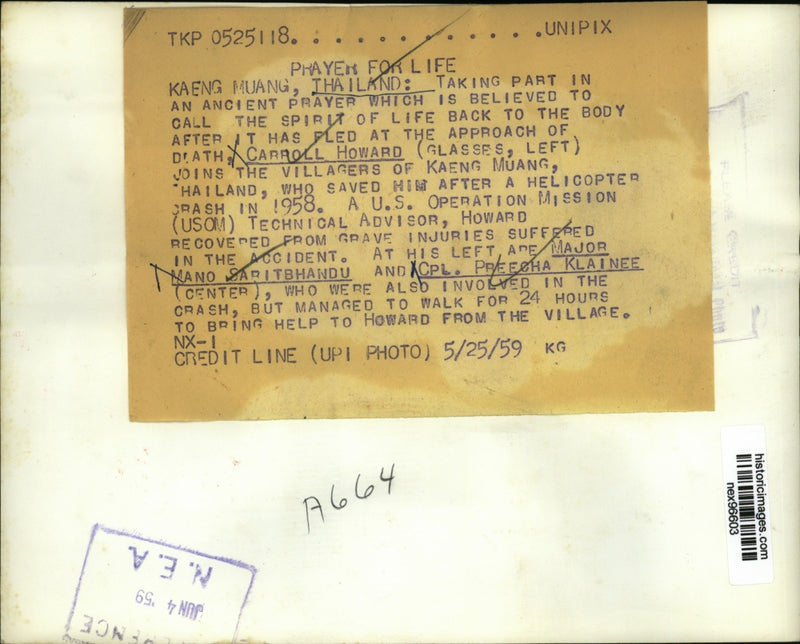 TKP 0525118. . . . . . . . . . . . .UNIPIX
PRAYER FOR LIFE
KAENG MUANG, THAILAND: TAKING PART IN
AN ANCIENT PRAYER WHICH IS BELIEVED TO
CALL THE SPIRIT OF LIFE BACK TO THE BODY
AFTER IT HAS FLED AT THE APPROACH OF
DEATH, CARROLL HOWARD (GLASSES, LEFT)
JOINS THE VILLAGERS OF KAENG MUANG,
THAILAND, WHO SAVED HIM AFTER A HELICOPTER
CRASH IN 1958. A U.S. OPERATION MISSION
(USOM) TECHNICAL ADVISOR, HOWARD
RECOVERED FROM GRAVE INJURIES SUFFERED
IN THE ACCIDENT. AT HIS LEFT ARE MAJOR
MANO SARITBHANDU AND CPL. PREECHA KLAINEE
(CENTER), WHO WERE ALSO INVOLVED IN THE
CRASH, BUT MANAGED TO WALK FOR 24 HOURS
TO BRING HELP TO HOWARD FROM THE VILLAGE.
NX-1
CREDIT LINE (UPI PHOTO) 5/25/59 KG
A664
historicimages.com
nex96603
N.E.A.
JUN 4 '59